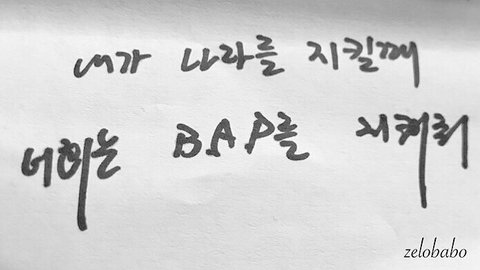 내가 나라를 지킬께
너희는 B.A.P를 지켜줘
zelobabo